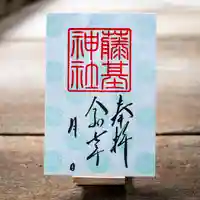 藤基
神社
奉拝
令和年
月 日